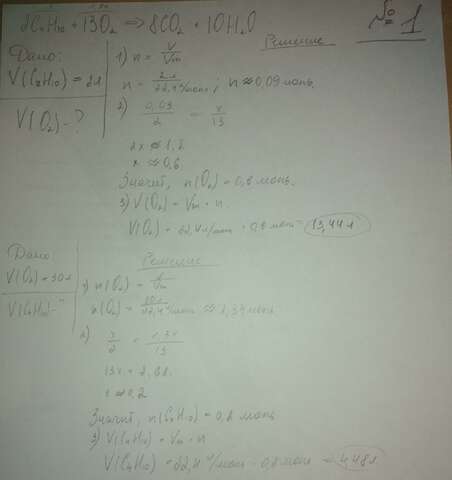 2C₄H₁₀ + 13O₂ ⇒ 8CO₂ + 10H₂O
№ 1
Дано:
V(C₄H₁₀) = 2л
V(O₂) - ?
Решение
1) n = V/Vm
n = 2л/22,4л/моль; n ≈ 0,09 моль.
2) 0,09/2 = x/13
2x ≈ 1,2
x ≈ 0,6
Значит, n(O₂) = 0,6 моль.
3) V(O₂) = Vm · n.
V(O₂) = 22,4 л/моль · 0,6 моль = 13,44 л
Дано:
V(O₂) = 30л
V(C₄H₁₀) - ?
Решение
1) n(O₂) = V/Vm
n(O₂) = 30л/22,4л/моль ≈ 1,34 моль
2) x/2 = 1,34/13
13x = 2,68
x ≈ 0,2
Значит, n(C₄H₁₀) = 0,2 моль
3) V(C₄H₁₀) = Vm · n
V(C₄H₁₀) = 22,4 л/моль · 0,2 моль = 4,48л